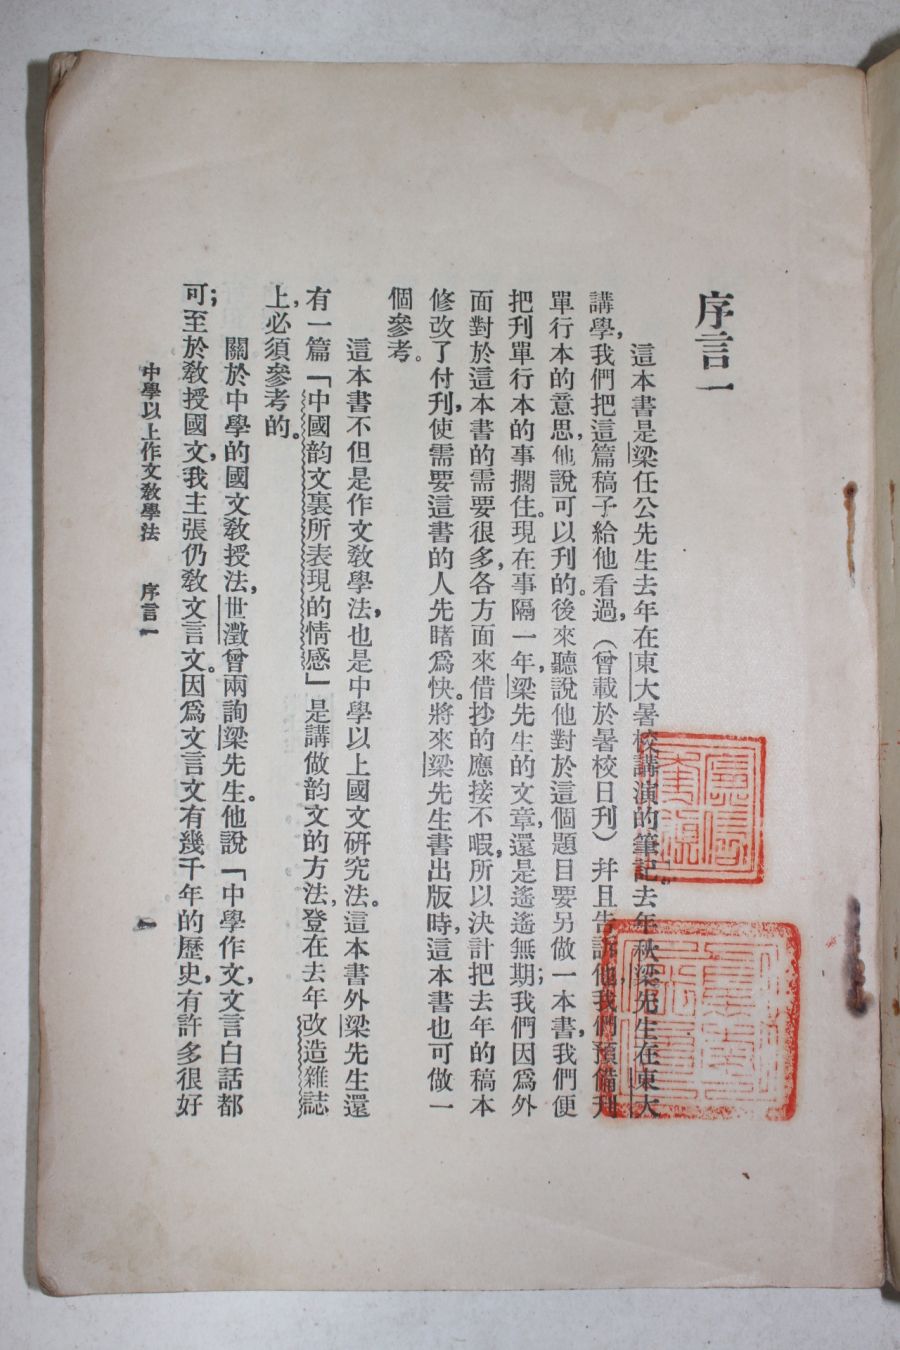 序言一
這本書是梁任公先生去年在東大暑校講演的筆記。去年秋，梁先生在東大
講學，我們把這篇稿子給他看過，（曾載於暑校日刊）幷且告訴他，我們預備刊
單行本的意思，他說可以刊的。後來聽說他對於這個題目要另做一本書，我們便
把刊單行本的事擱住。現在事隔一年，梁先生的文章，還是遙遙無期；我們因爲外
面對於這本書的需要很多，各方面來借抄的應接不暇，所以決計把去年的稿本
修改了付刊，使需要這書的人先睹爲快。將來梁先生書出版時，這本書也可做一
個參考。
這本書不但是作文敎學法，也是中學以上國文研究法。這本書外梁先生還
有一篇「中國韵文裏所表現的情感」是講做韵文的方法，登在去年改造雜誌
上，必須參考的。
關於中學的國文敎授法，世瀓曾兩詢梁先生。他說「中學作文，文言白話都
可；至於敎授國文，我主張仍敎文言文。因爲文言文有幾千年的歷史，有許多很好
中學以上作文敎學法　序言一
一